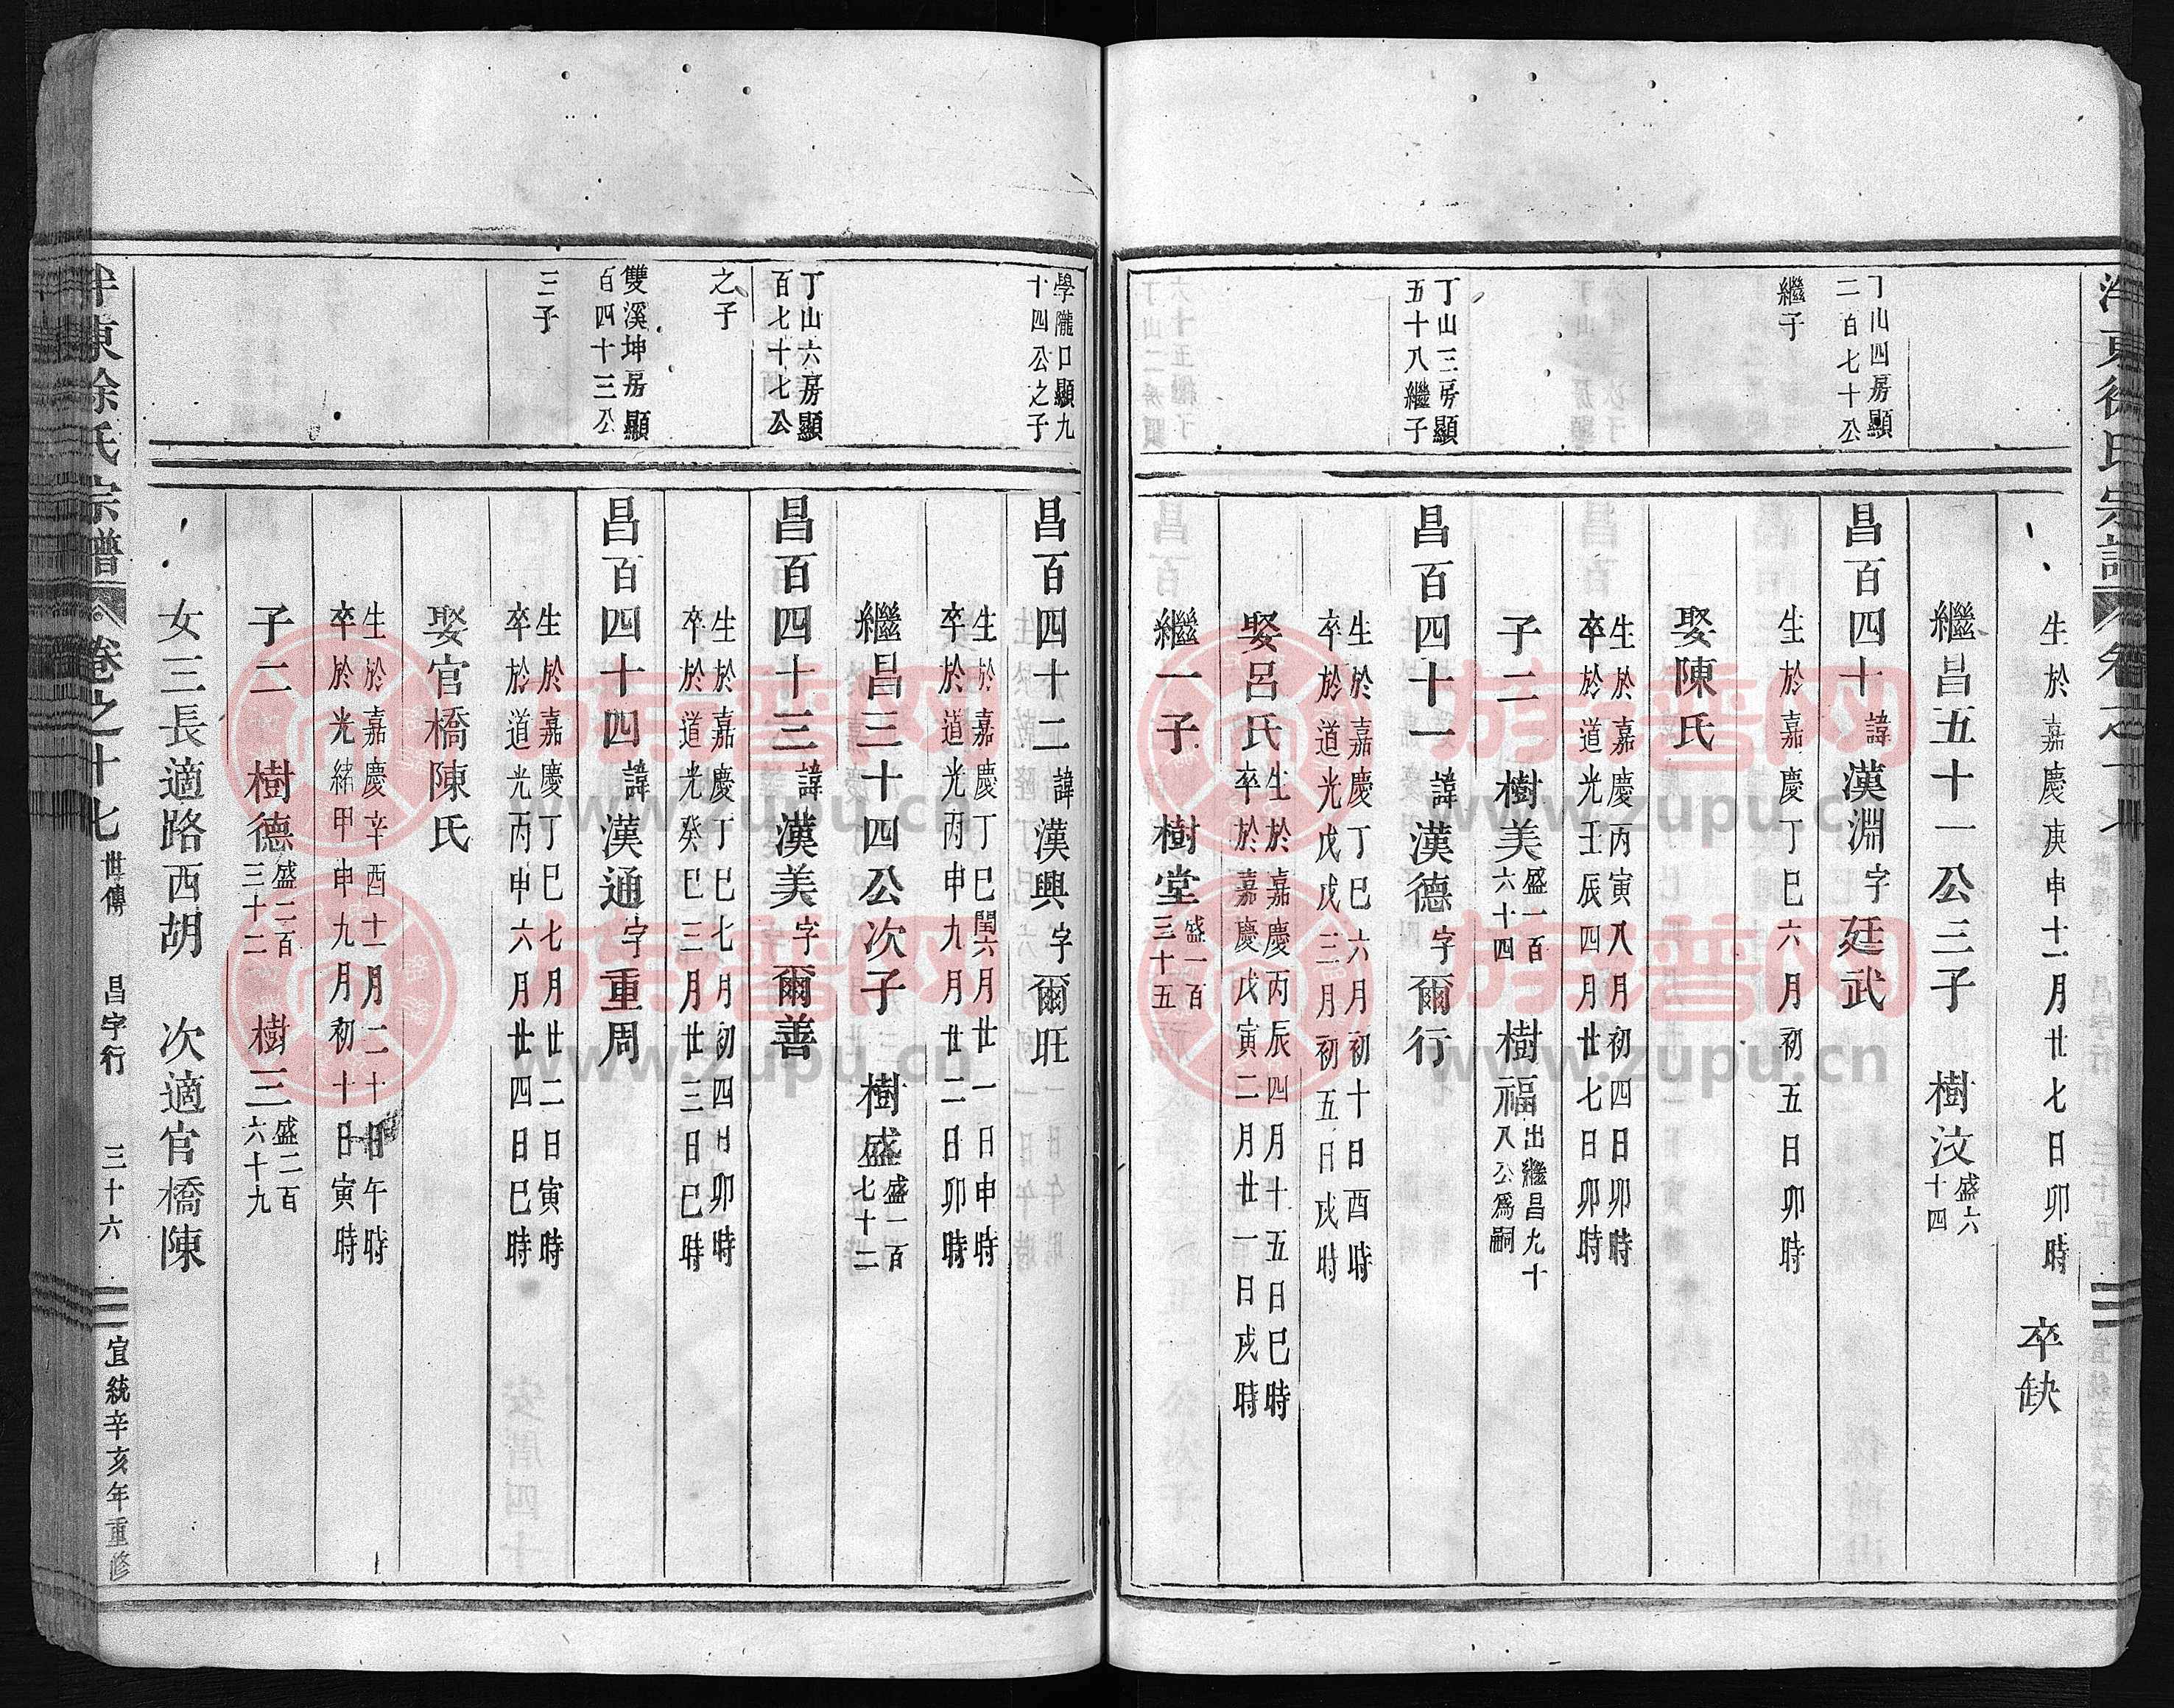 生於嘉慶庚申十一月廿七日卯時 卒缺
繼昌五十一公三子 樹汶盛六十四
丁山四房顯二百七十公繼子
昌百四十諱漢淵字廷武
生於嘉慶丁巳六月初五日卯時
娶陳氏
生於嘉慶丙寅八月初四日卯時
卒於道光壬辰四月廿七日卯時
子二 樹美盛一百六十四 樹福出繼昌九十八公爲嗣
丁山三房顯五十八繼子
昌百四十一諱漢德字爾行
生於嘉慶丁巳六月初十日酉時
卒於道光戊戌三月初五日戌時
娶呂氏生於嘉慶丙辰四月十五日巳時
卒於嘉慶戊寅二月廿一日戌時
繼一子 樹堂盛一百三十五
學隴口顯九十四公之子
昌百四十二諱漢興字爾旺
生於嘉慶丁巳閏六月廿一日申時
卒於道光丙申九月廿二日卯時
繼昌三十四公次子 樹盛盛一百七十二
丁山六房顯百七十七公之子
昌百四十三諱漢美字爾善
生於嘉慶丁巳七月初四日卯時
卒於道光癸巳三月廿三日巳時
雙溪坤房顯百四十三公三子
昌百四十四諱漢通字重周
生於嘉慶丁巳七月廿二日寅時
卒於道光丙申六月廿四日巳時
娶官橋陳氏
生於嘉慶辛酉十一月二十日午時
卒於光緒甲申九月初十日寅時
子二 樹德盛二百三十二 樹三盛二百六十九
女三長適路西胡 次適官橋陳
東徐氏宗譜 卷之十七 世傳 昌字行 三十六 宣統辛亥年重修
族譜网
www.zupu.cn
族譜网
www.zupu.cn
族譜网
www.zupu.cn
族譜网
www.zupu.cn